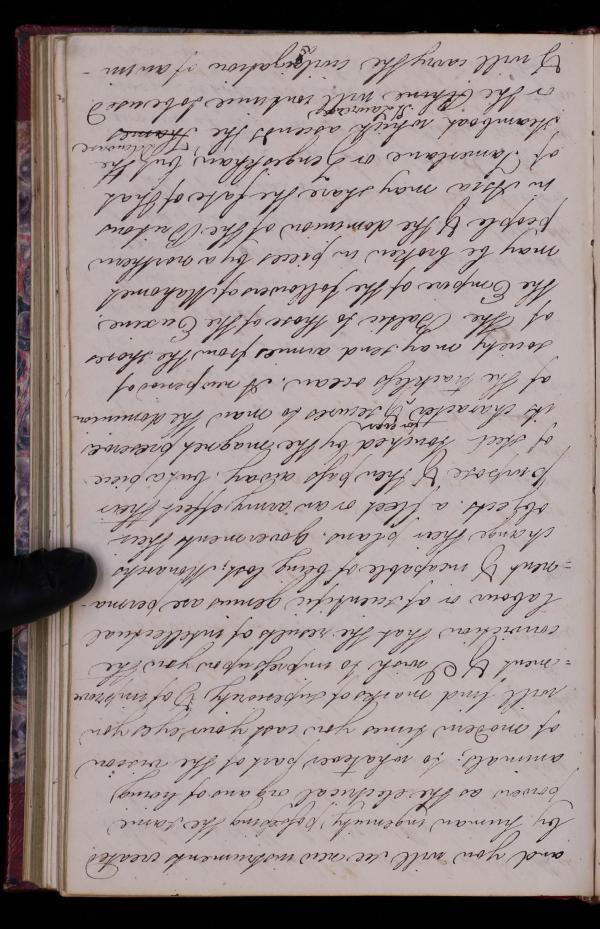 and you will see new instruments created
by human ingenuity possessing the same
powers as the electrical organs of living
animals; to whatever part of the vision
of modern times you cast your eyes you
will find marks of superiority & of improve
=ment & I wish to impress upon you the
conviction that the results of intellectual
labour or of scientific genius are perma-
=nent & incapable of being lost, Monarchs
change their plans, governments their
objects, a fleet or an army effect their
purpose & then pass away. but a piece
of steel touched by the magnet preserves
its character for ever & secures to man the dominion
of the trackless ocean. A new period of
society may send armies from the shores
of the Baltic to those of the Euxine,
the Empire of the followers of Mahomet
may be broken in pieces by a northern
people & the dominion of the Britons
in Asia may share the fate of that
of Tamerlane or Zengiskhan; but the
steamboat which ascends the Thames Delaware
or the Rhine St Lawrence will continue to be used
& will carry the civilization of an im-